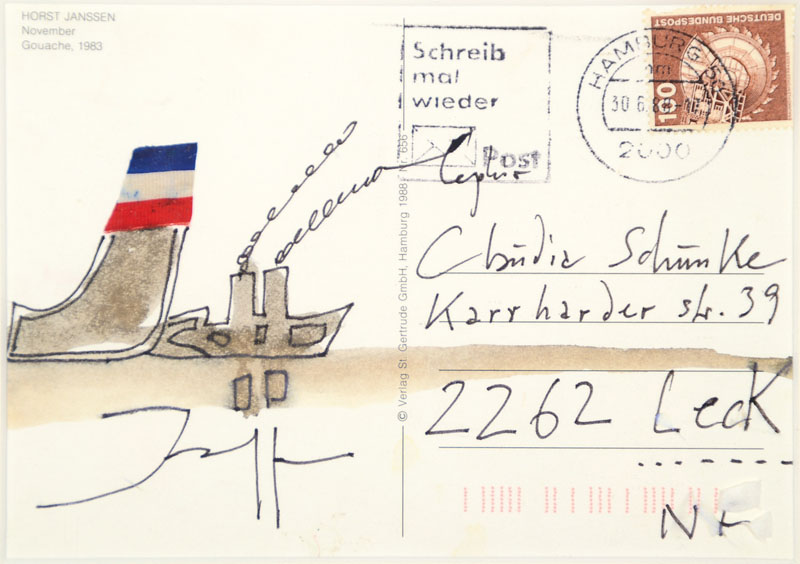 HORST JANSSEN
November
Gouache, 1983
Schreib
mal
wieder
Post
HAMBURG
30.6.88
2000
DEUTSCHE BUNDESPOST
100
© Verlag St. Gertrude GmbH, Hamburg 1988 Nr. 656
Claudia Schunke
Karrharder str. 39
2262 Leck
NF